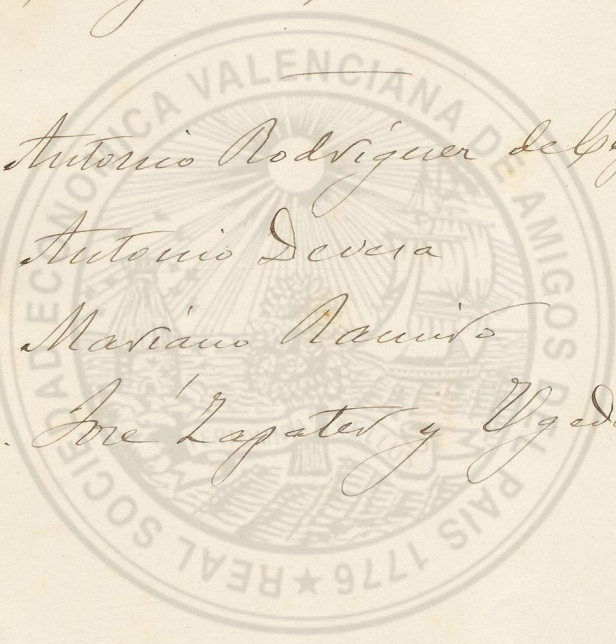 Antonio Rodriguez de
Antonio Devesa
Mariano Ramiro
José Zapater y
REAL SOCIEDAD ECONOMICA VALENCIANA DE AMIGOS DEL PAIS 1776